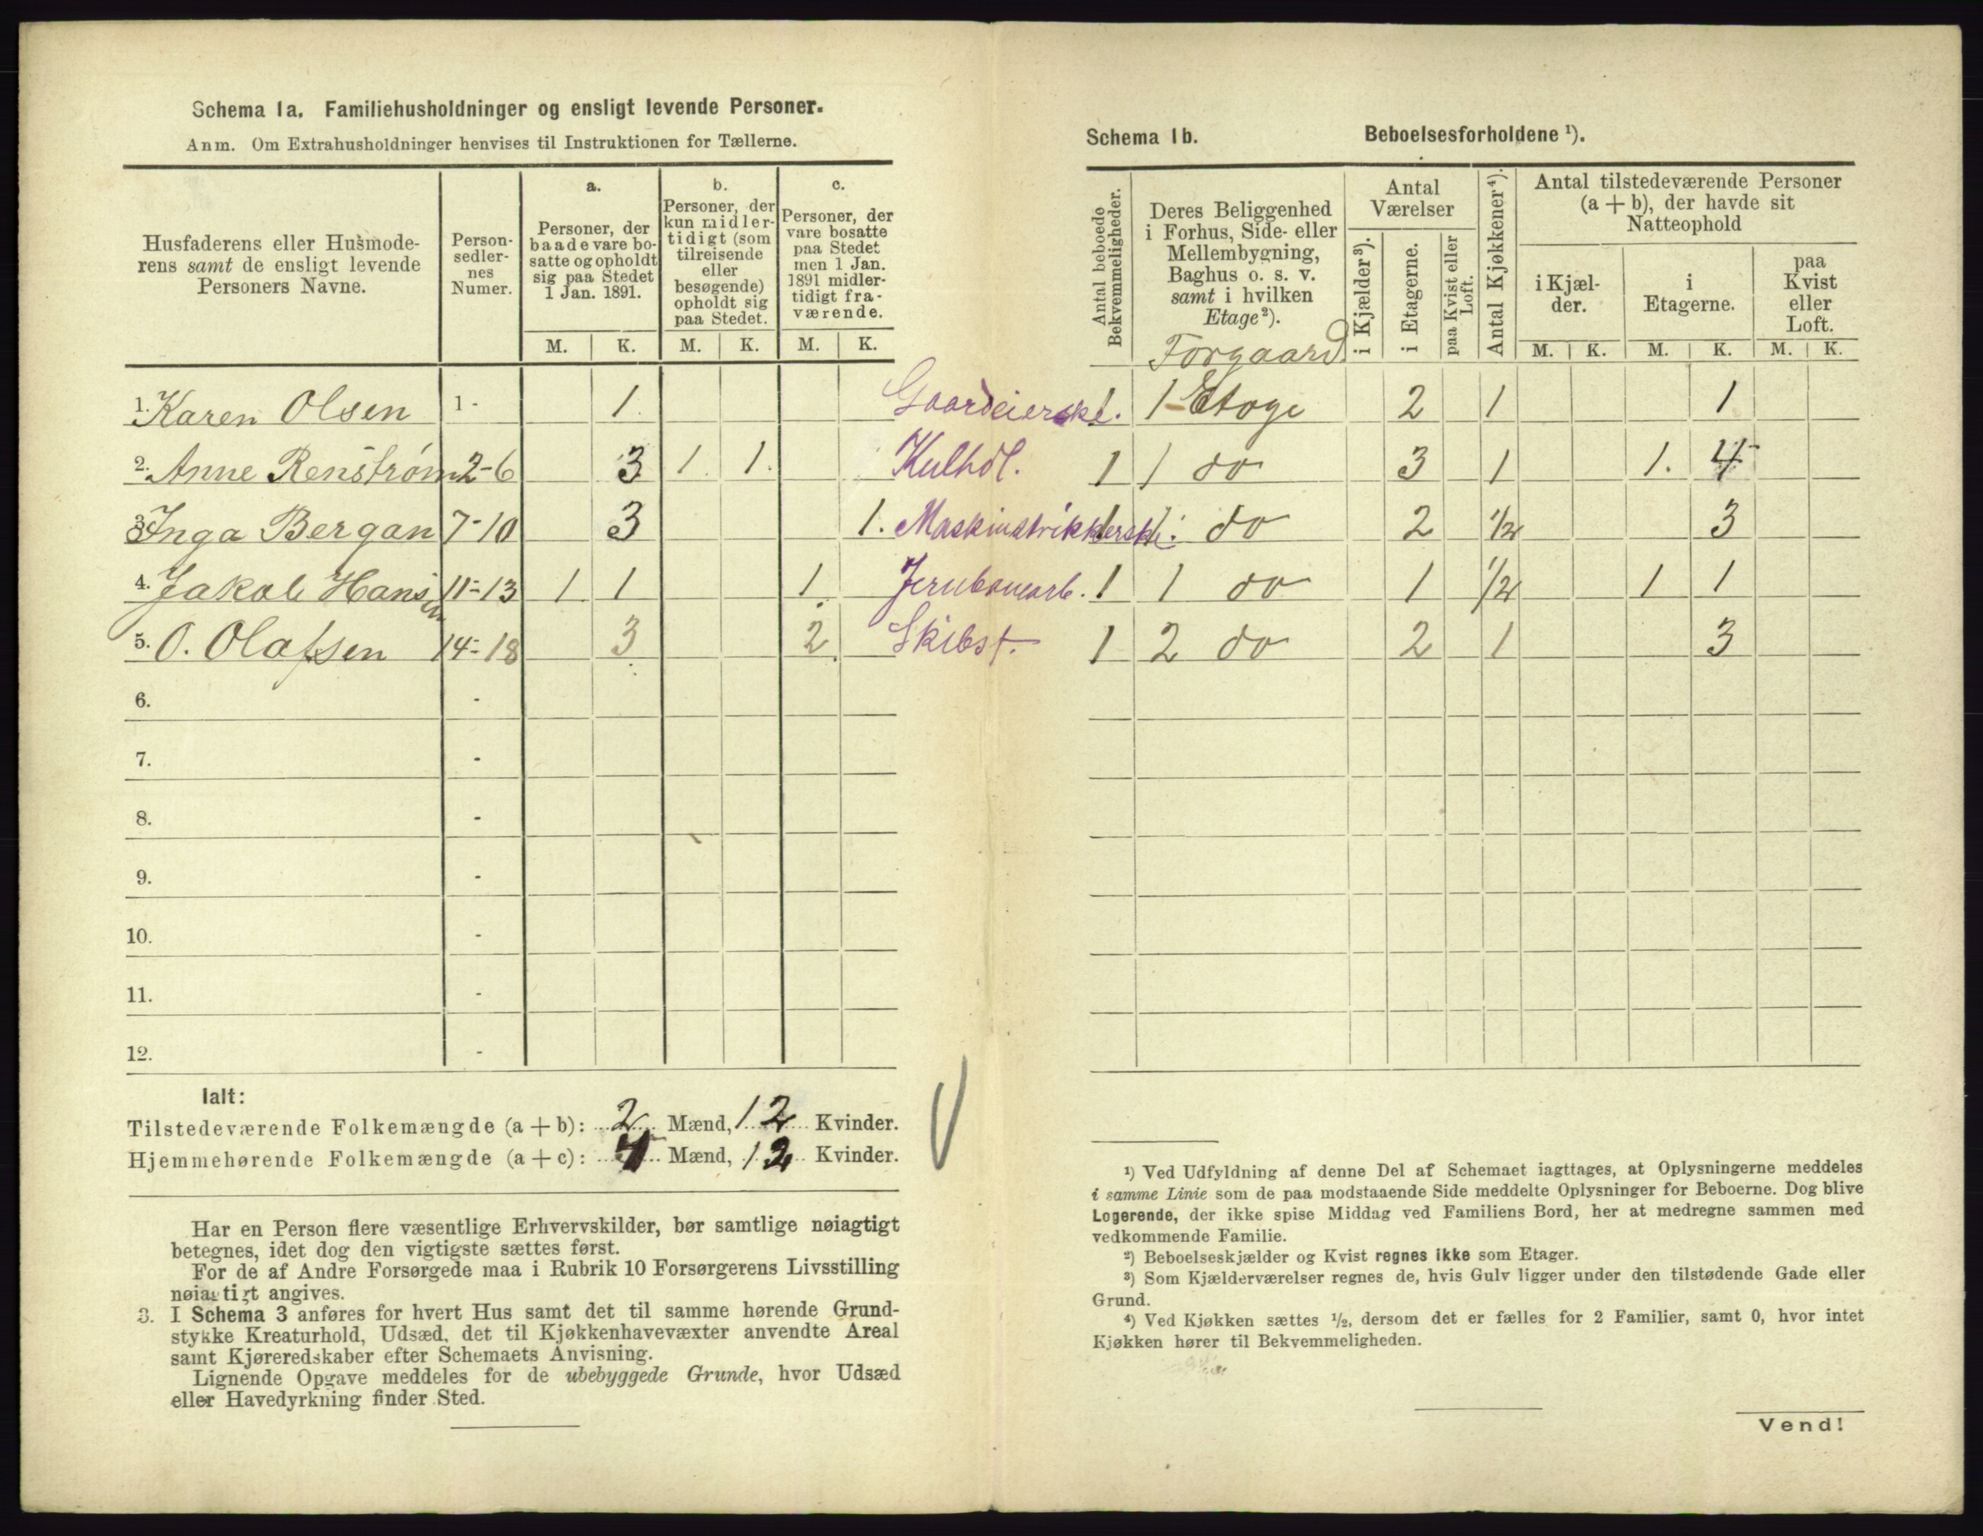 Schema 1a. Familiehusholdninger og ensligt levende Personer.
Anm. Om Extrahusholdninger henvises til Instruktionen for Tællerne.
Husfaderens eller Husmoderens samt de ensligt levende Personers Navne.
Person-sedlernes Numer.
a.
Personer, der baade vare bosatte og opholdt sig paa Stedet 1 Jan. 1891.
b.
Personer, der kun midlertidigt (som tilreisende eller besøgende) opholdt sig paa Stedet.
c.
Personer, der vare bosatte paa Stedet men 1 Jan. 1891 midlertidigt fraværende.
M. K. M. K. M. K.
1. Karen Olsen 1 - 1.
2. Anne Renstrøm 2-6 3 1. 1.
3. Inga Bergan 7-10 3 1.
4. Jakob Hansen 11-13 1 1 1.
5. O. Olafsen 14-18 3 2
6. -
7. -
8. -
9. -
10. -
11. -
12. -
Ialt:
Tilstedeværende Folkemængde (a + b): 2 Mænd, 12 Kvinder.
Hjemmehørende Folkemængde (a + c): 4 Mænd, 12 Kvinder.
Har en Person flere væsentlige Erhvervskilder, bør samtlige nøiagtigt
betegnes, idet dog den vigtigste sættes først.
For de af Andre Forsørgede maa i Rubrik 10 Forsørgerens Livsstilling
nøiagtigt angives.
3. I Schema 3 anføres for hvert Hus samt det til samme hørende Grund-
stykke Kreaturhold, Udsæd, det til Kjøkkenhavevæxter anvendte Areal
samt Kjøreredskaber efter Schemaets Anvisning.
Lignende Opgave meddeles for de ubebyggede Grunde, hvor Udsæd
eller Havedyrkning finder Sted.
Schema 1b. Beboelsesforholdene ¹).
Antal beboede Bekvemmeligheder.
Deres Beliggenhed i Forhus, Side- eller Mellembygning, Baghus o. s. v. samt i hvilken Etage²).
Antal Værelser
i Kjælder³).
i Etagerne.
paa Kvist eller Loft.
Antal Kjøkkener⁴).
Antal tilstedeværende Personer (a + b), der havde sit Natteophold
i Kjælder.
i Etagerne.
paa Kvist eller Loft.
M. K. M. K. M. K.
Forgaard
Gaardeierske. 1. 1 Etage 2 1 1
Kulhdl. 1 1 do 3 1 1. 4
Maskinstrikkerske. 1 1 do 2 1/2 3
Jernbanearb. 1 1 do 1 1/2 1 1
Skibst. 1 2 do 2 1 3
¹) Ved Udfyldning af denne Del af Schemaet iagttages, at Oplysningerne meddeles
i samme Linie som de paa modstaaende Side meddelte Oplysninger for Beboerne. Dog blive
Logerende, der ikke spise Middag ved Familiens Bord, her at medregne sammen med
vedkommende Familie.
²) Beboelseskjælder og Kvist regnes ikke som Etager.
³) Som Kjælderværelser regnes de, hvis Gulv ligger under den tilstødende Gade eller
Grund.
⁴) Ved Kjøkken sættes ½, dersom det er fælles for 2 Familier, samt 0, hvor intet
Kjøkken hører til Bekvemmeligheden.
Vend!